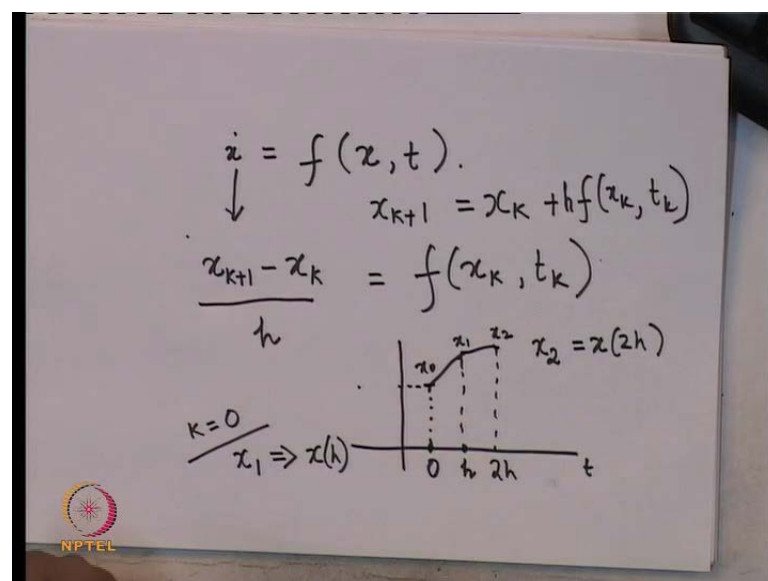 ẋ = f(x, t).
↓
x_{k+1} = x_k + hf(x_k, t_k)
x_{k+1} - x_k
h
= f(x_k, t_k)
x_0 x_1 x_2
x_2 = x(2h)
k = 0
x_1 ⇒ x(h)
0 h 2h t
NPTEL